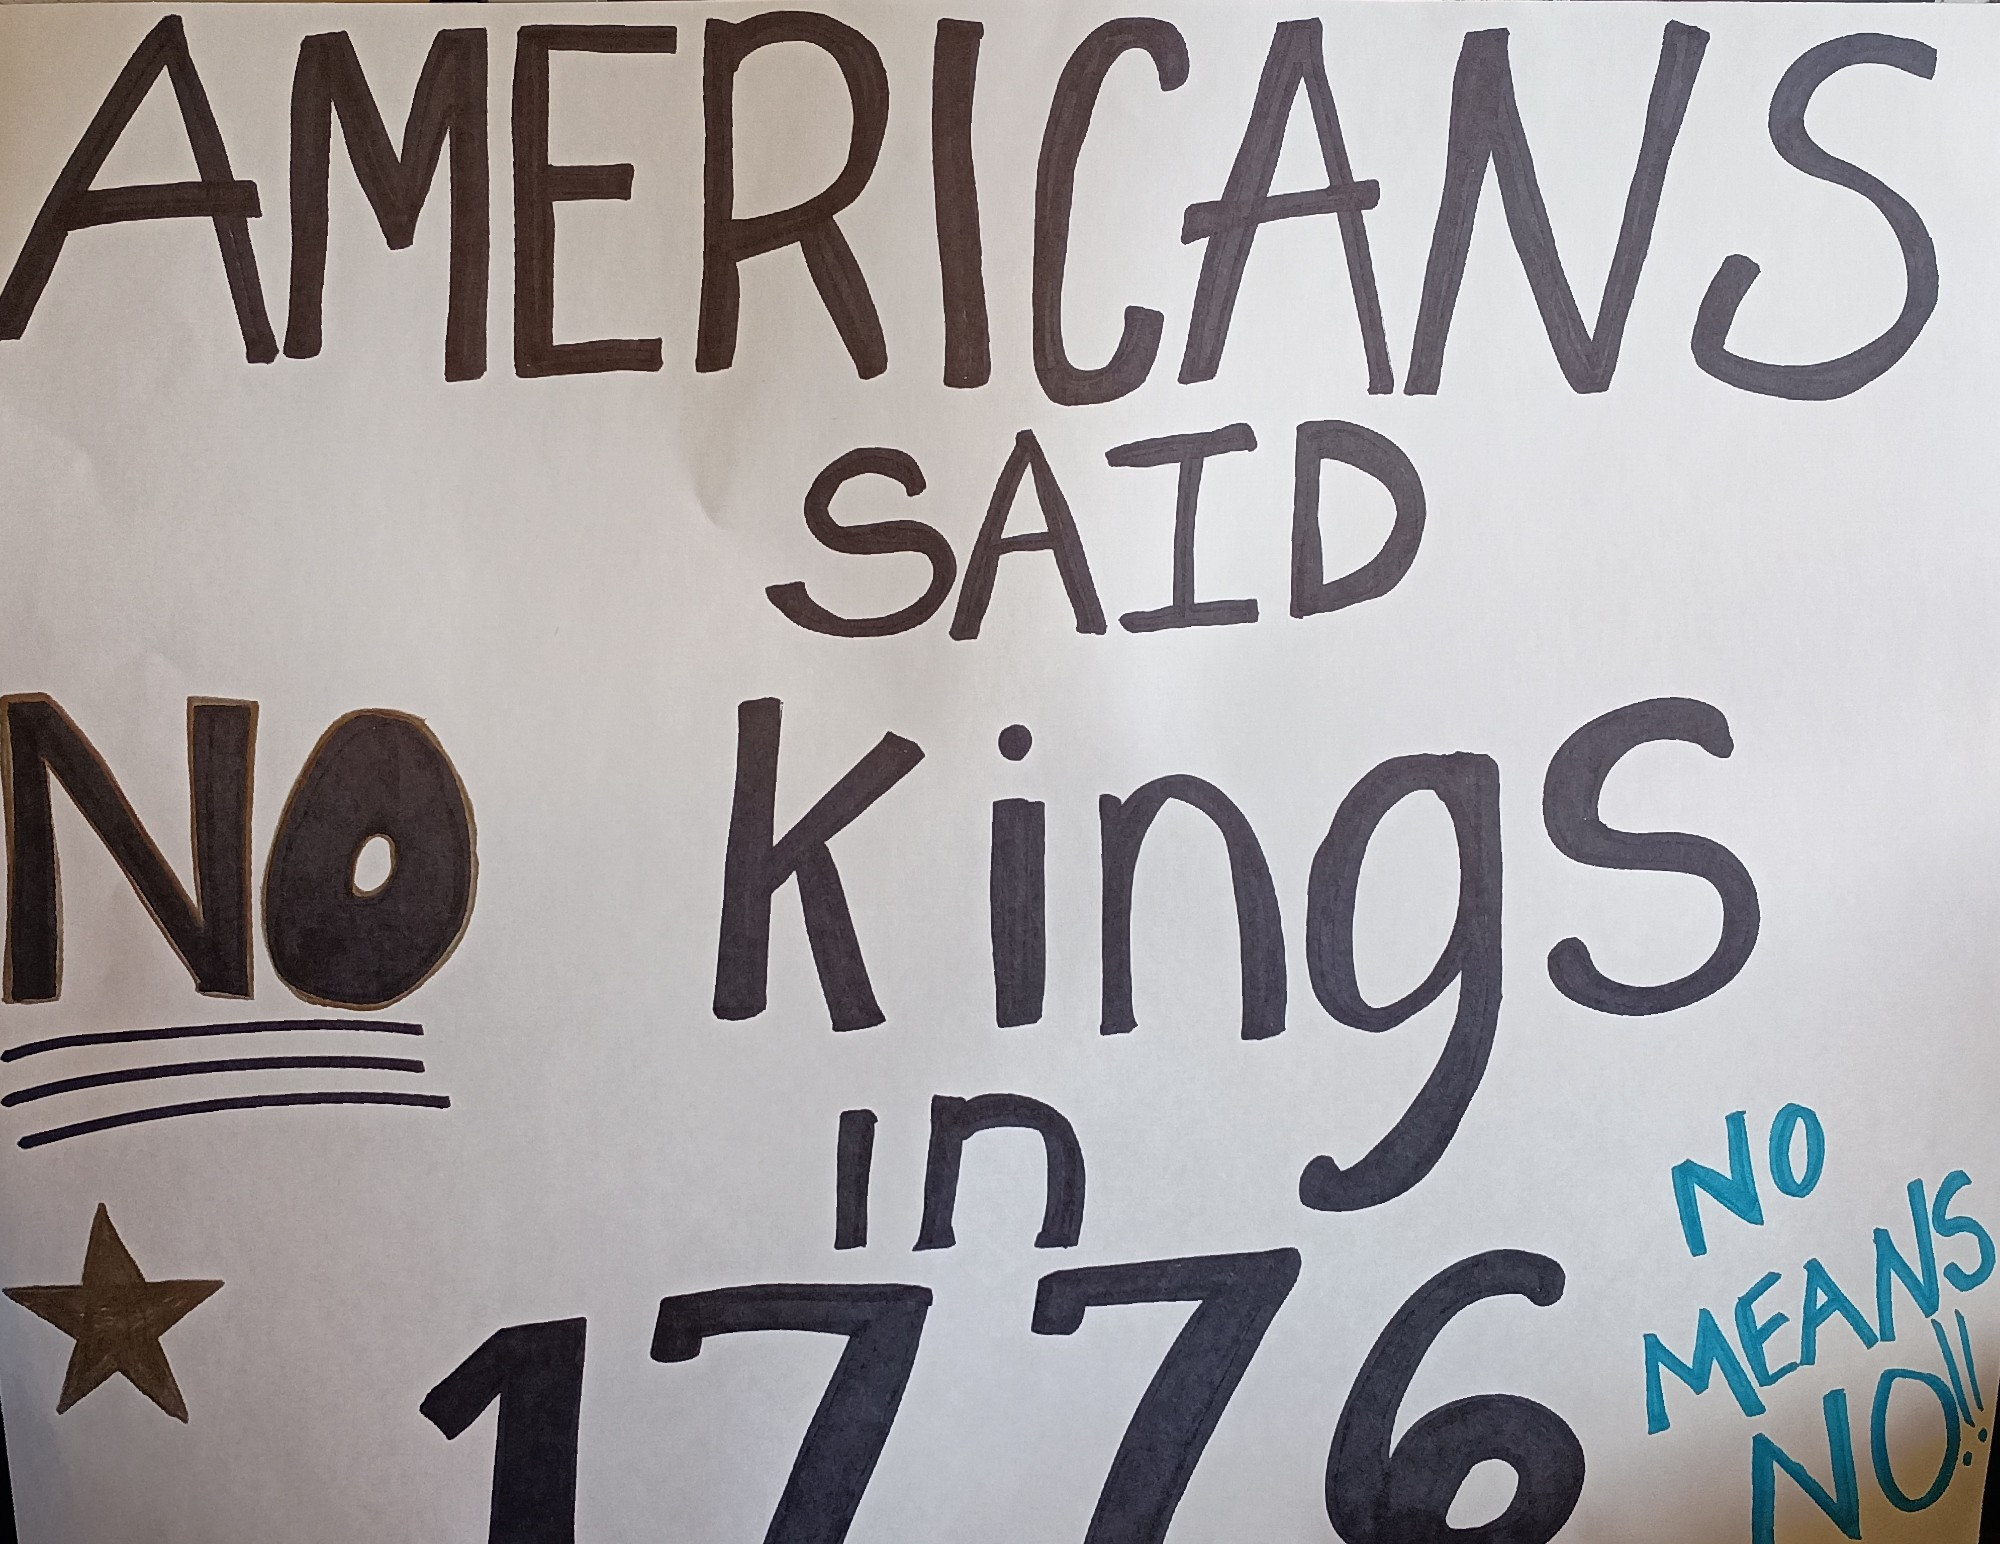 AMERICANS
SAID
NO Kings
in
1776
NO
MEANS
NO!!